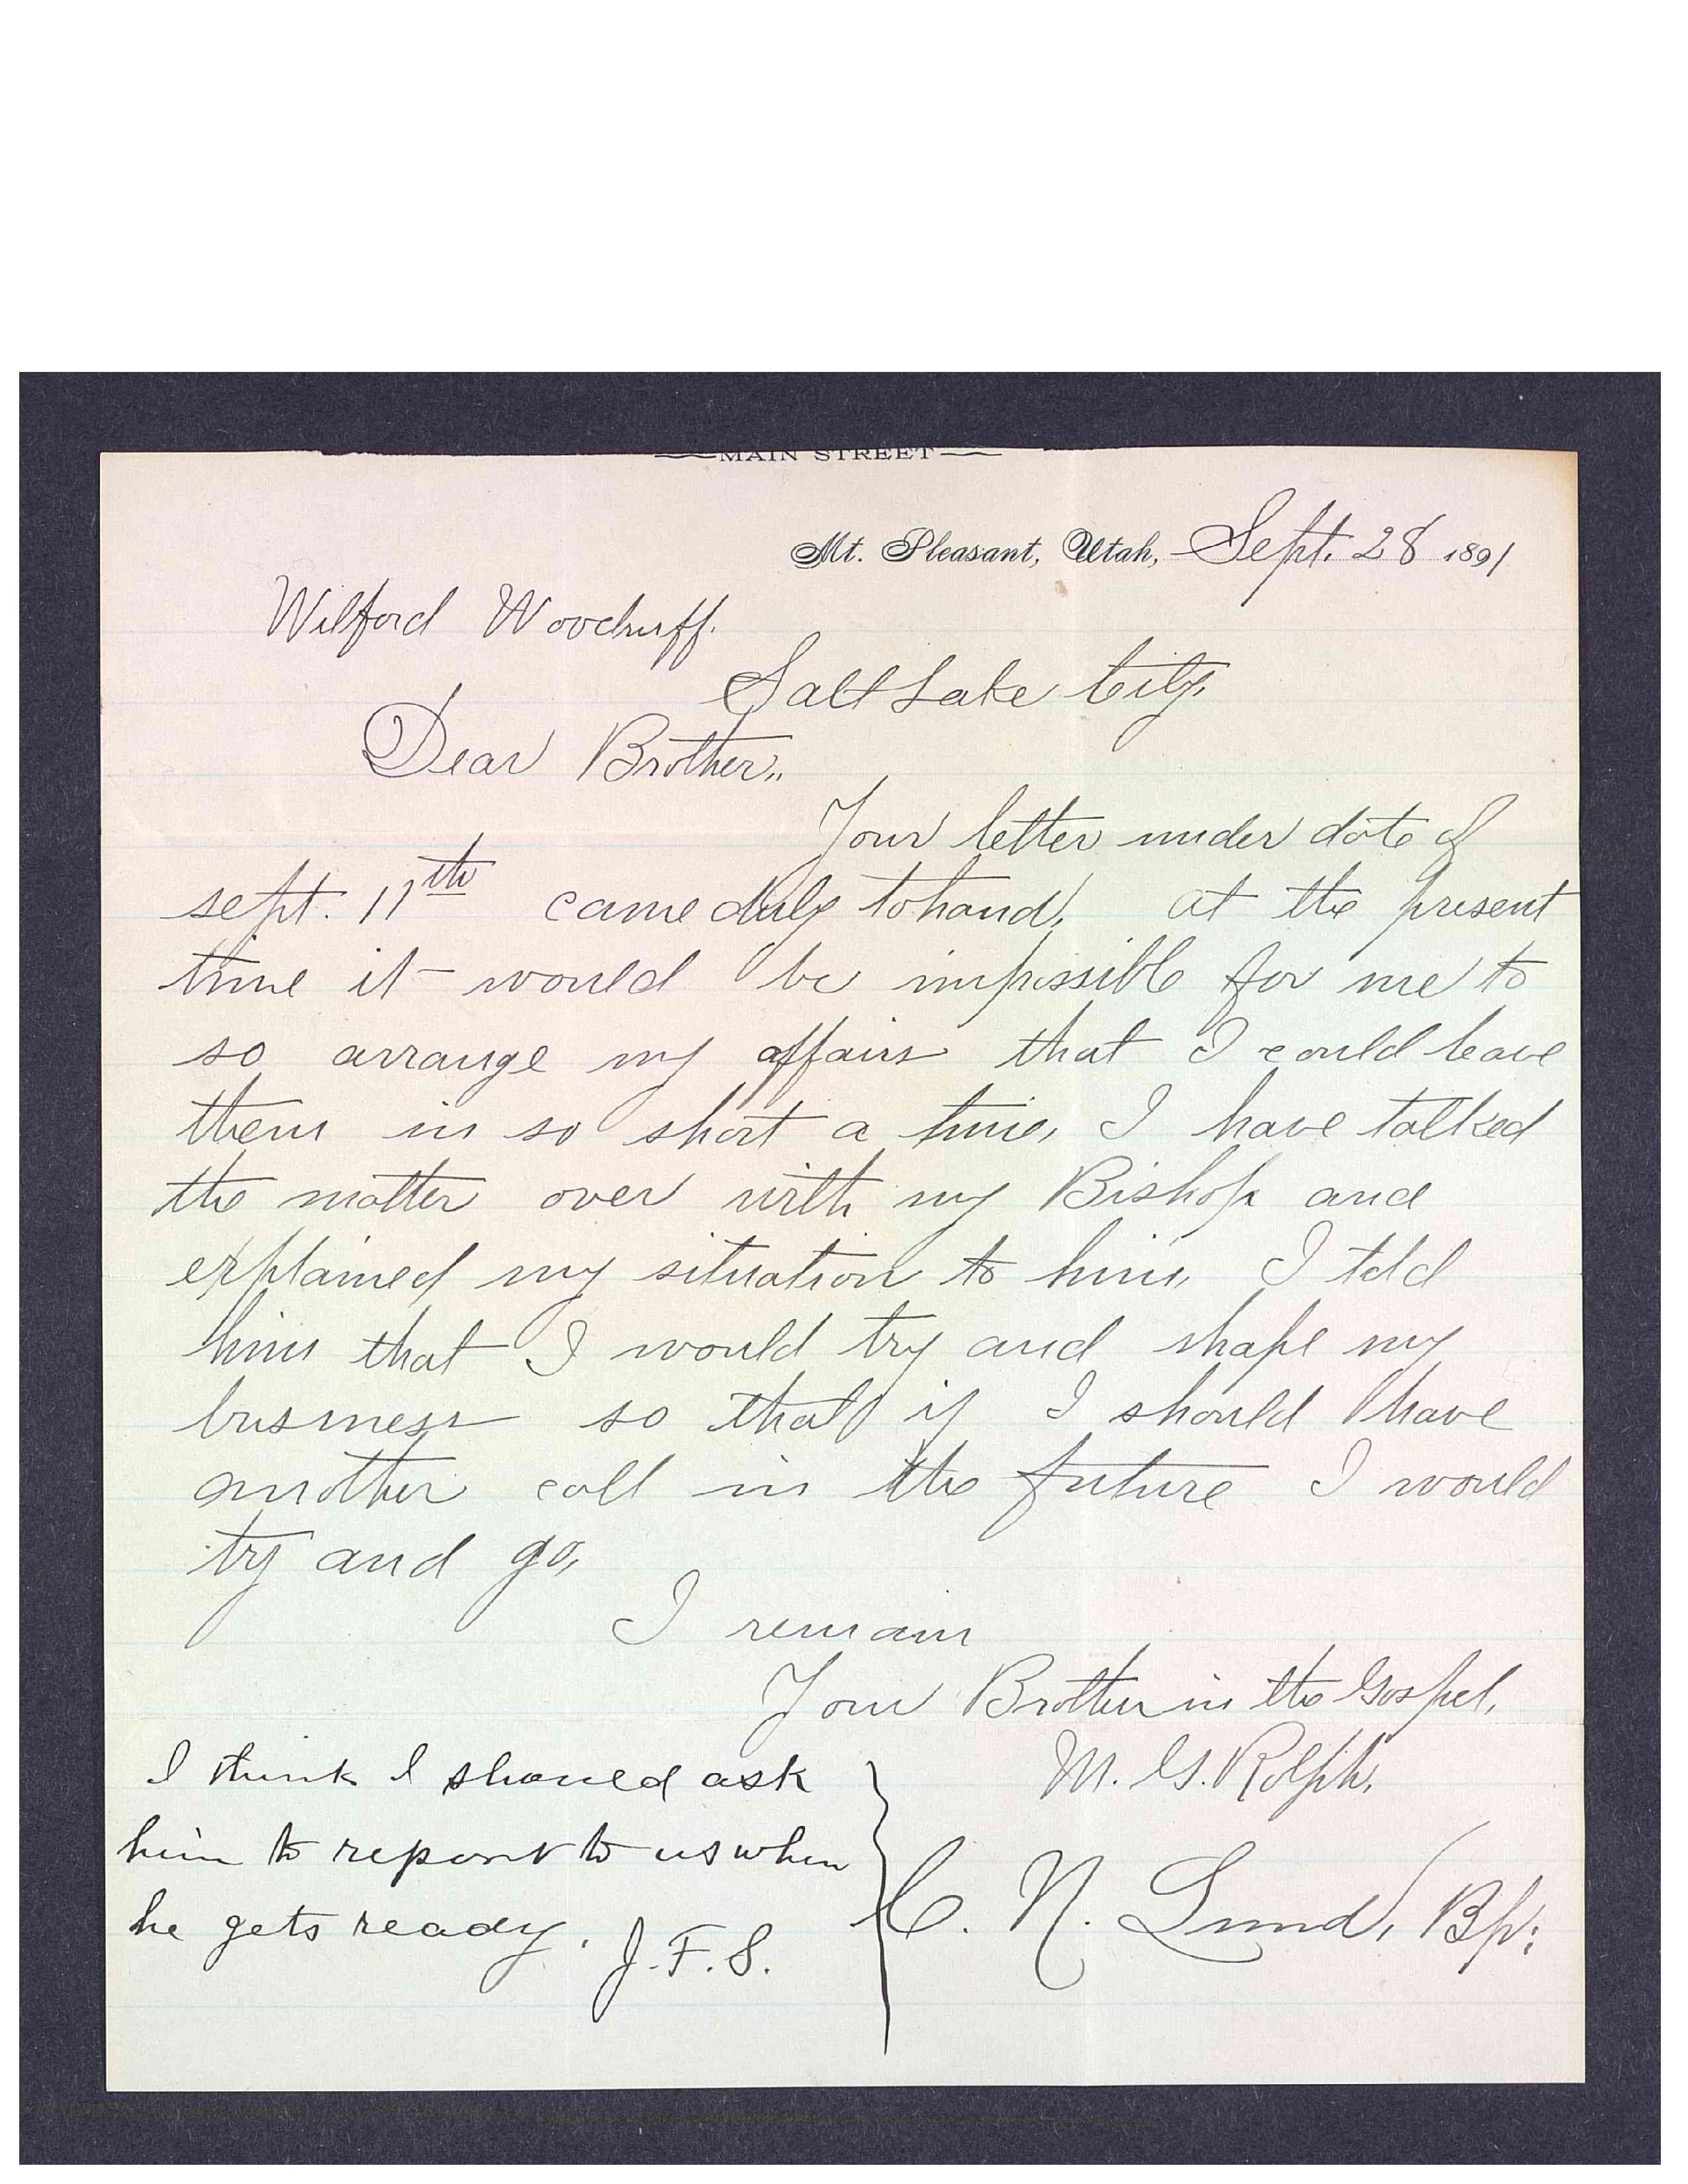 MAIN STREET
Mt. Pleasant, Utah, Sept. 28 1891
Wilford Woodruff.
Salt Lake City.
Dear Brother,,
Your letter under date of
sept. 11th came duly to hand, at the present
time it would be impossible for me to
so arrange my affairs that I could leave
them in so short a time, I have talked
the matter over with my Bishop and
explained my situation to him, I told
him that I would try and shape my
business so that if I should have
another call in the future I would
try and go,
I remain
Your Brother in the Gospel,
M. G. Rolph,
C. N. Lund, Bp:
I think I should ask
him to report to us when
he gets ready. J. F. S.